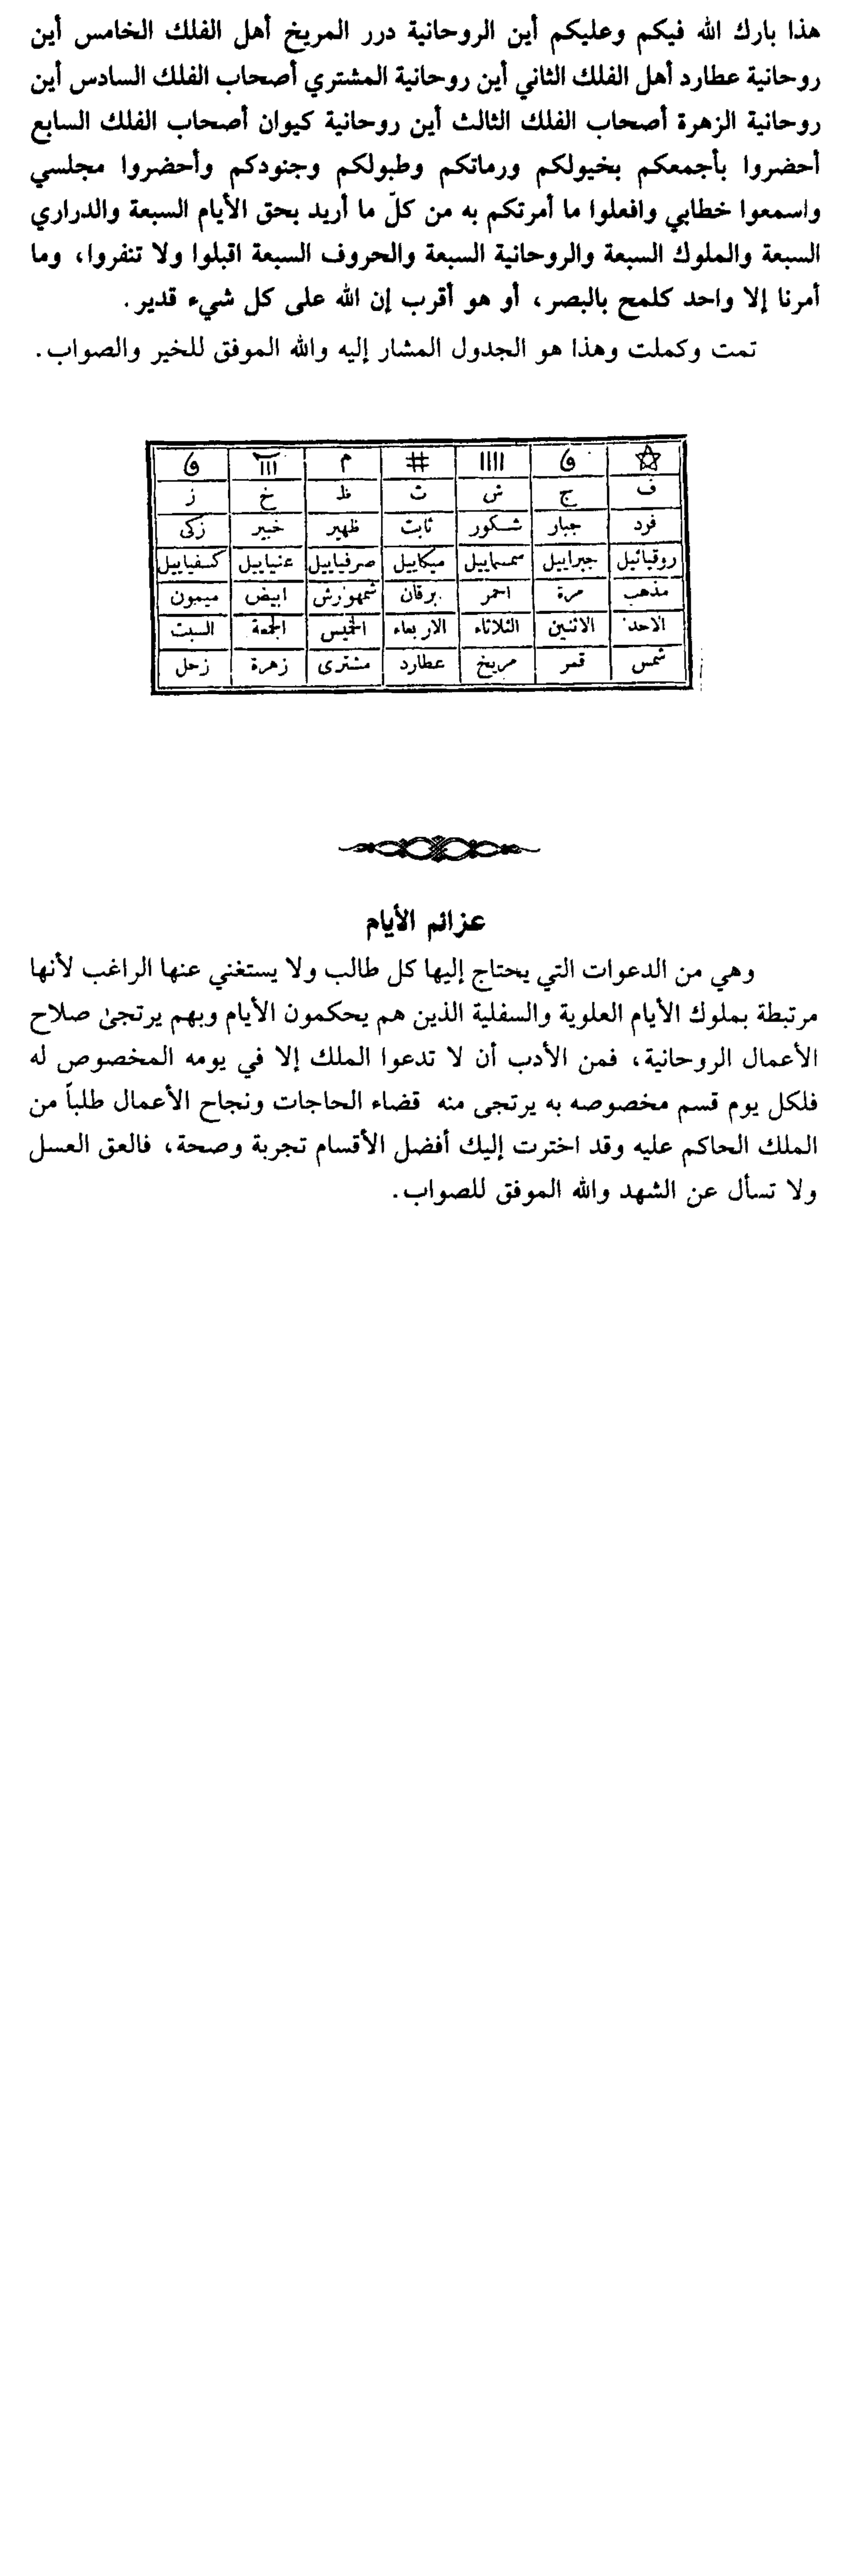 هذا بارك الله فيكم وعليكم أين الروحانية درر المريخ أهل الفلك الخامس أين
روحانية عطارد أهل الفلك الثاني أين روحانية المشتري أصحاب الفلك السادس أين
روحانية الزهرة أصحاب الفلك الثالث أين روحانية كيوان أصحاب الفلك السابع
أحضروا بأجمعكم بخيولكم ورماتكم وطبولكم وجنودكم وأحضروا مجلسي
واسمعوا خطابي وافعلوا ما أمرتكم به من كلّ ما أريد بحق الأيام السبعة والدراري
السبعة والملوك السبعة والروحانية السبعة والحروف السبعة اقبلوا ولا تنفروا، وما
أمرنا إلا واحد كلمح بالبصر، أو هو أقرب إن الله على كل شيء قدير.
تمت وكملت وهذا هو الجدول المشار إليه والله الموفق للخير والصواب.
ف ج ش ث ظ خ ز
فرد جبار شكور ثابت ظهير خبير زكى
روقيائيل جبراييل سمسماييل ميكاييل صرفياييل عنياييل كسفياييل
مذهب مرة احمر برقان شمهورش ابيض ميمون
الاحد الاثنين الثلاثاء الاربعاء الخميس الجمعة السبت
شمس قمر مريخ عطارد مشترى زهرة زحل
عزائم الأيام
وهي من الدعوات التي يحتاج إليها كل طالب ولا يستغني عنها الراغب لأنها
مرتبطة بملوك الأيام العلوية والسفلية الذين هم يحكمون الأيام وبهم يرتجىٰ صلاح
الأعمال الروحانية، فمن الأدب أن لا تدعوا الملك إلا في يومه المخصوص له
فلكل يوم قسم مخصوصه به يرتجى منه قضاء الحاجات ونجاح الأعمال طلباً من
الملك الحاكم عليه وقد اخترت إليك أفضل الأقسام تجربة وصحة، فالعق العسل
ولا تسأل عن الشهد والله الموفق للصواب.